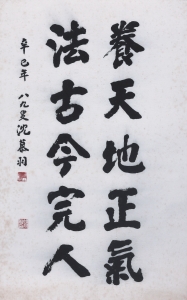 養天地正氣
法古今完人
辛巳年 八九叟沈慕羽